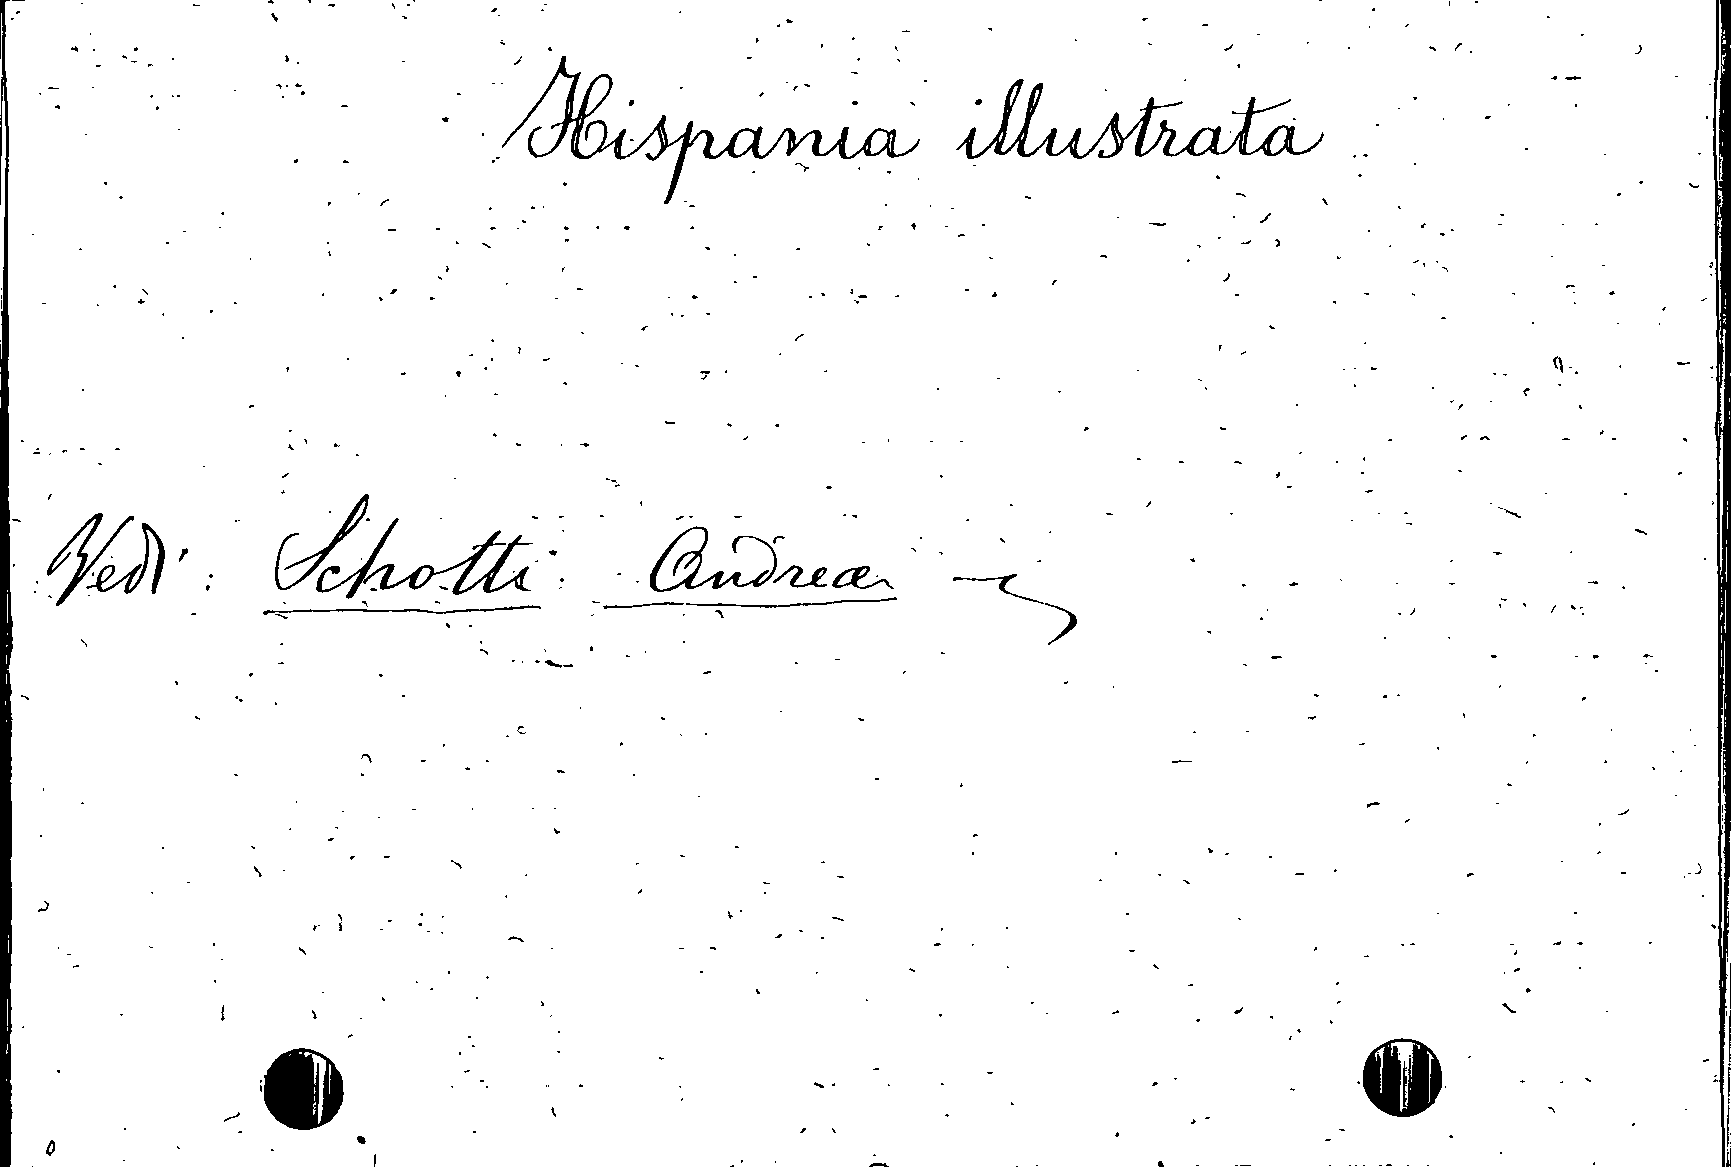 Hispania illustrata
Vedi : Schotti Andrea